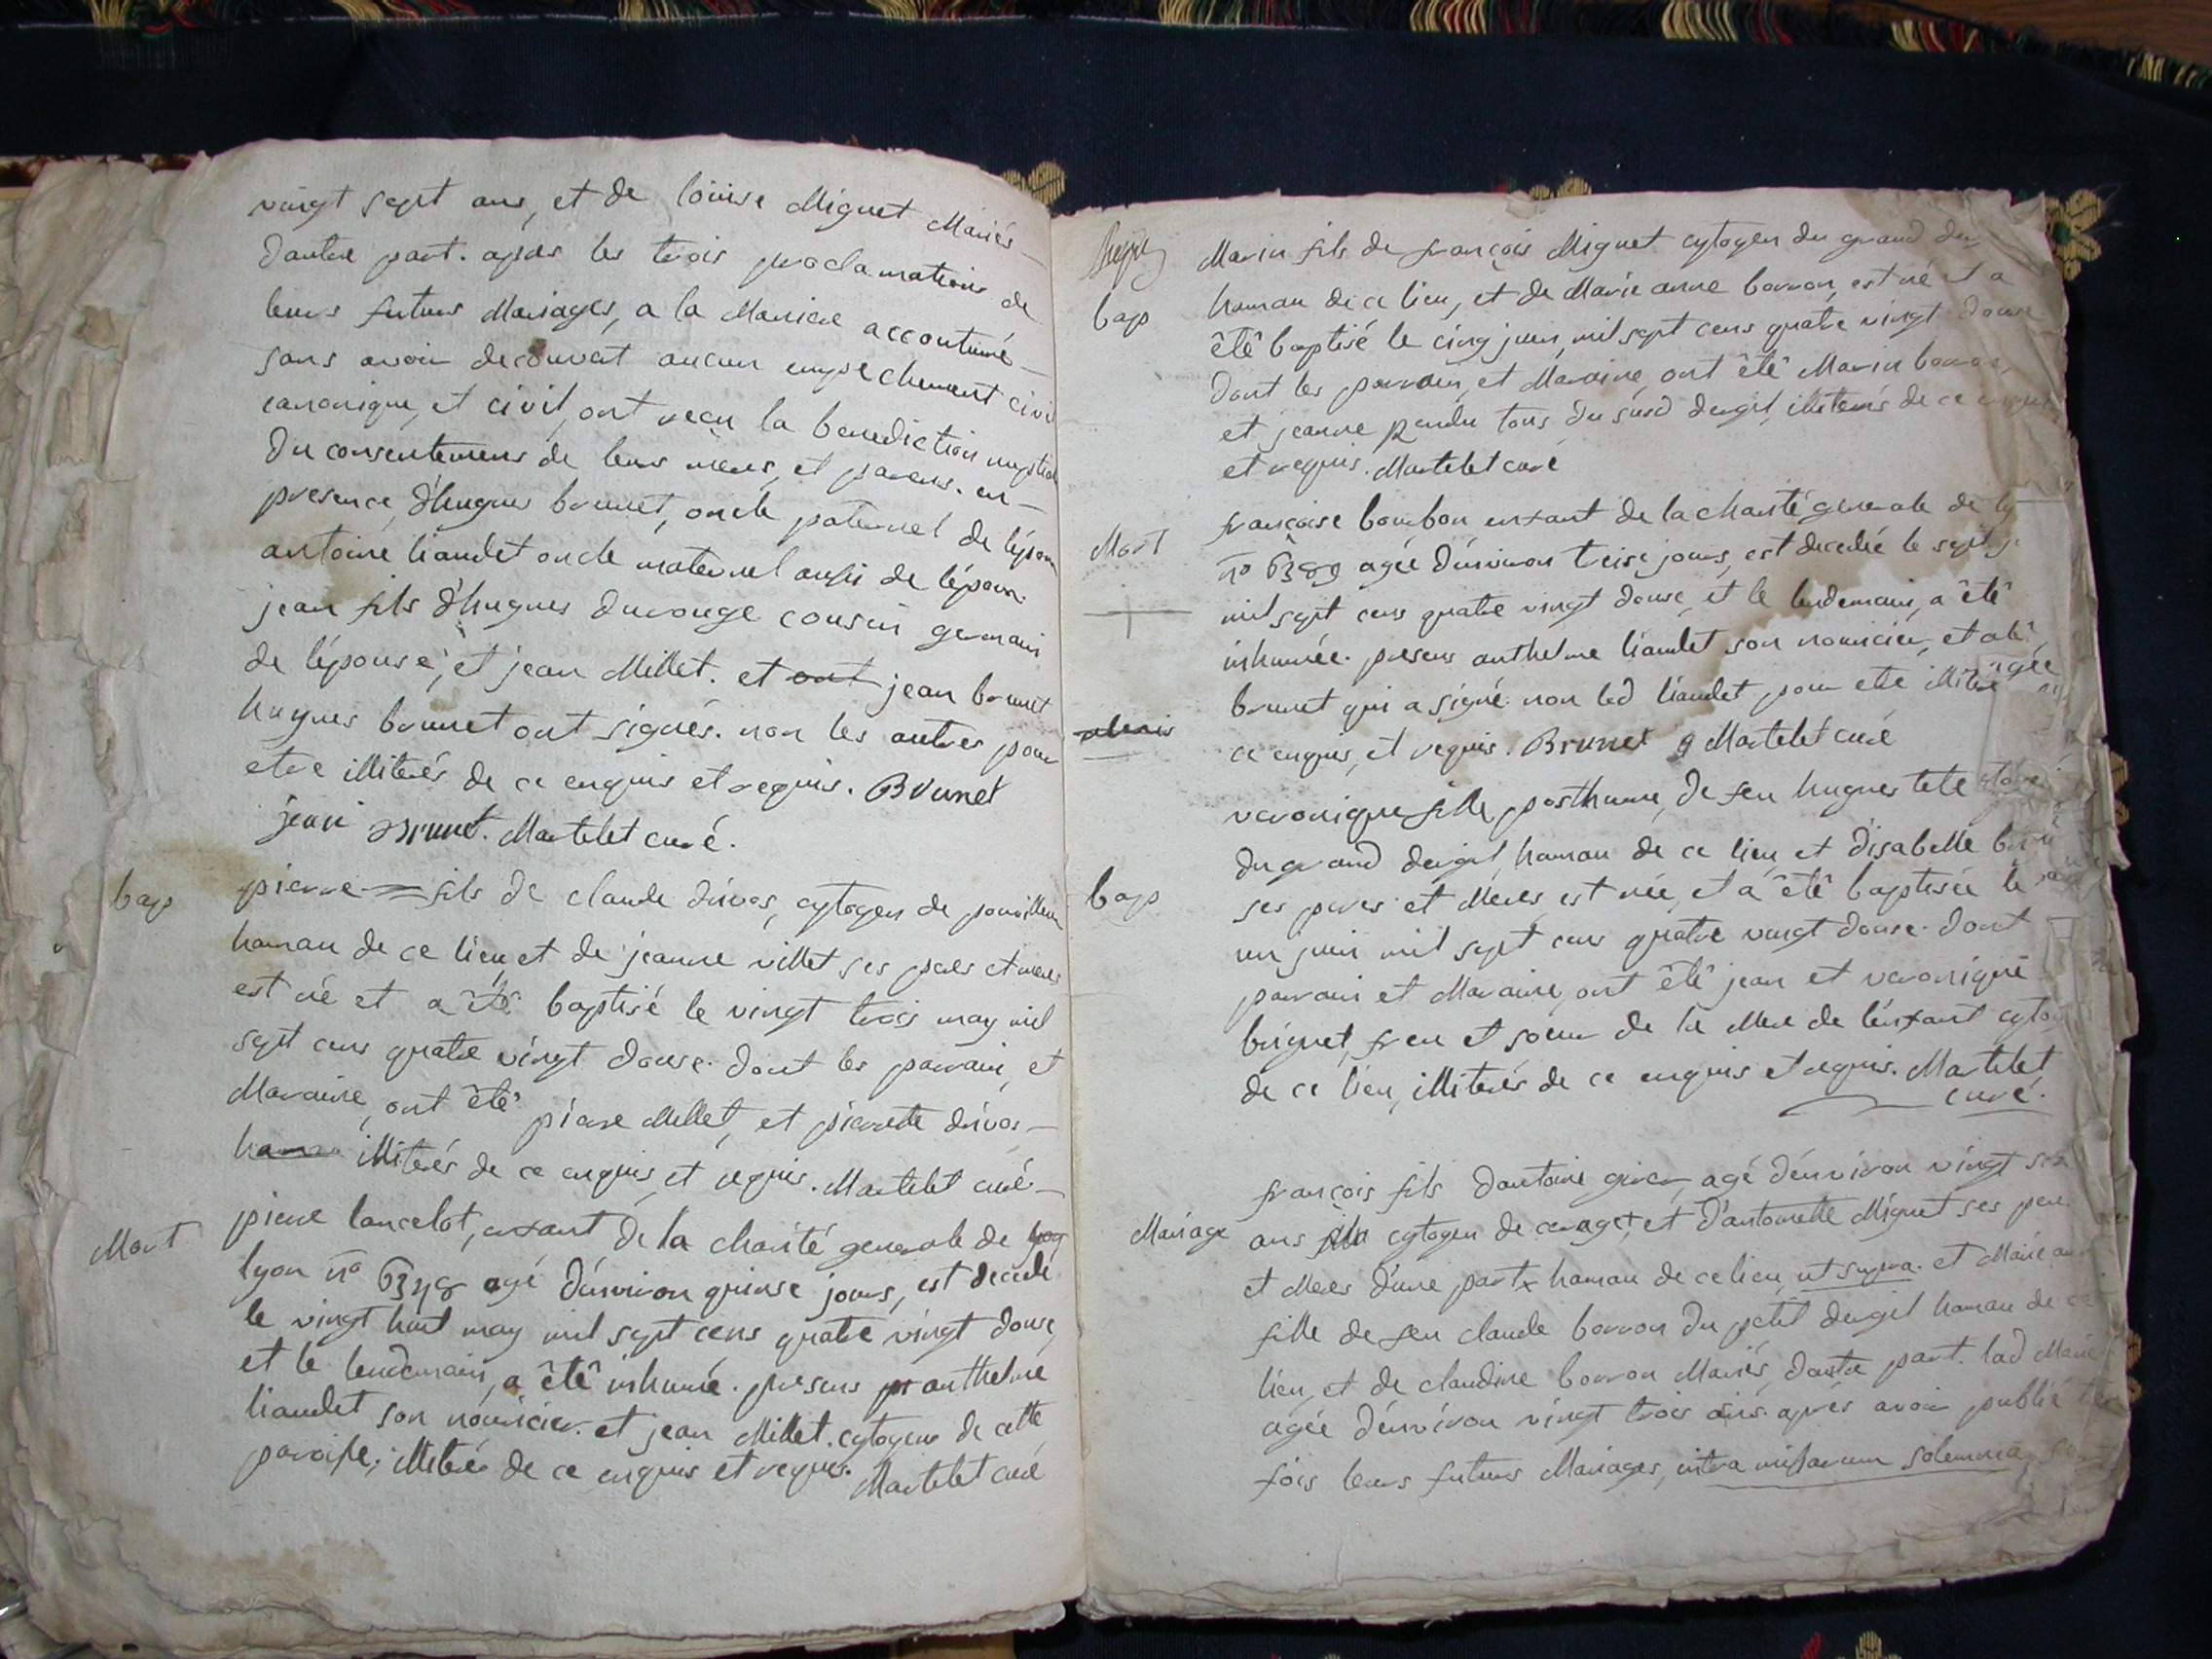 vingt sept ans, et de loüise Miguet Mariés
dautre part. apres les trois proclamations de
leurs futurs Mariages, a la Maniere accoutumé
sans avoir decouvert aucun empechement civil
canonique, et civil, ont reçu la benediction nuptial
du consentemens de leurs meres, et parens. en
presence, d'hugues brunet, oncle paternel de l'épou
antoine liaudet oncle maternel aussi de l'épou
jean fils d'hugues durouge cousin germain
de l'épouse, et jean Millet. et ont jean brunet
hugues brunet ont signés. non les autres pour
etre illiterés de ce enquis et requis. Brunet
jean Brunet. Martelet curé.
bap
pierre = fils de claude drivos, cytoyen de
hamau de ce lieu, et de jeanne villet ses peres et meres
est né et a êtê baptisé le vingt trois may mil
sept cens quatre vingt douse. dont les parrain, et
Maraine, ont êtê pierre Millet, et pierrette drivos
illiterés de ce enquis, et requis. Martelet curé
Mort
pierre lancelot, enfant de la charité generale de
lyon n° agé d'environ quinse jours, est decedé
le vingt huit may mil sept cens quatre vingt douse,
et le lendemain, a êtê inhumé. presens anthelme
liaudet son nouricier. et jean Millet. cytoyens de cette
paroisse, illiterés de ce enquis et requis. Martelet curé
bap
Marin fils de françois Miguet cytoyen du grand
hamau de ce lieu, et de Marie anne borron, est né et a
êtê baptisé le cinq juin, mil sept cens quatre vingt douse
dont les parrain, et Maraine, ont êtê Marin borron,
et jeanne tous du susd dergit, illiterés de ce enquis
et requis. Martelet curé
Mort
françoise bourbon enfant de la charité generale de ly
n° agée d'environ treise jours, est decedée le sept
mil sept cens quatre vingt douse, et le lendemain, a êtê
inhumée. presens anthelme liaudet son nouricier, et
brunet qui a signé. non led liaudet pour etre illiteré
ce enquis, et requis. Brunet Martelet curé
bap
veronique fille, posthume, de feu hugues tete
du grand dergit, hamau de ce lieu, et d'isabelle
ses peres et Meres, est née, et a êtê baptisée le
un juin mil sept cens quatre vingt douse. dont
parrain et Maraine, ont êtê jean et veronique
briguet, frere et soeur de la Mere de l'enfant cyto
de ce lieu, illiterés de ce enquis et requis. Martelet
curé.
Mariage
françois fils dantoine agé d'environ vingt
ans cytoyen de et d'antoinette Miguet ses pere
et Meres d'une part hamau de ce lieu, ut supra. et Marie
fille de feu claude borron du petit dergit hamau de ce
lien, et de claudine borron Mariés, dautre part. lad Marie
agée d'environ vingt trois ans. aprés avoir publié
fois leurs futurs Mariages, intra missarum solemnia,